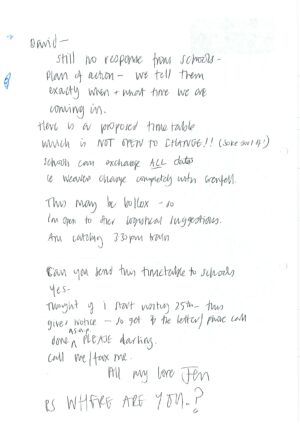 David —
Still no response from schools -
Plan of action - we tell them
exactly when + what time we are
coming in.
Here is a proposed timetable
which is NOT OPEN TO CHANGE!! (Save
Schools can exchange ALL dates
ie Weavers change completely with Grenfell.
This may be bollox - so
I'm open to other logistical suggestions.
Am catching 3.30pm train
Can you send this timetable to schools
Yes -
Thought if I start visiting 25th - this
gives notice - so get the letter/phone call
done A.S.A.P. PLEASE darling.
Call me/fax me.
All my love Jen
PS WHERE ARE YOU -?